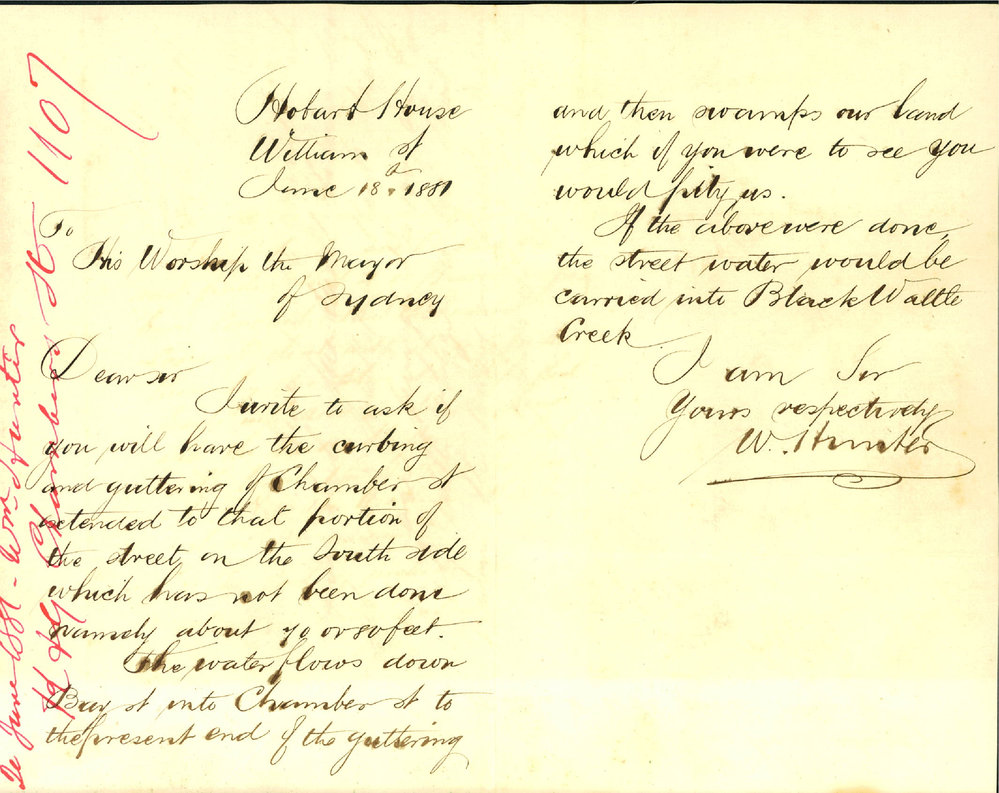 Hobart House
William st
June 18th 1881
To
His Worship the Mayor
of Sydney
Dear sir
I write to ask if
you will have the curbing
and guttering of Chamber st
extended to that portion of
the street, on the South side
which has not been done
namely about 70 or 80 feet.
The water flows down
Bay st into Chamber st to
the present end of the guttering
and then swamps our land
which if you were to see you
would pity us.
If the above were done,
the street water would be
carried into Black Wattle
Creek.
I am Sir
Yours respectively
W. Hunter
June 1881 - Wm Hunter
Chambers St 1107